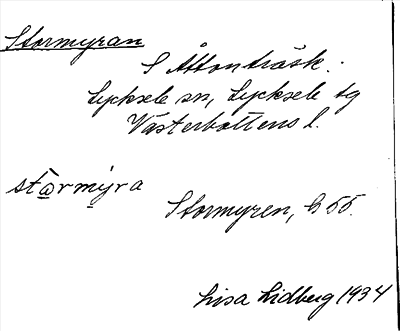 Stormyran
S Åttonträsk.
Lycksele sn, Lycksele tg
Västerbottens l.
stårmỳra
Stormyren, b 55.
Lisa Lidberg 1934